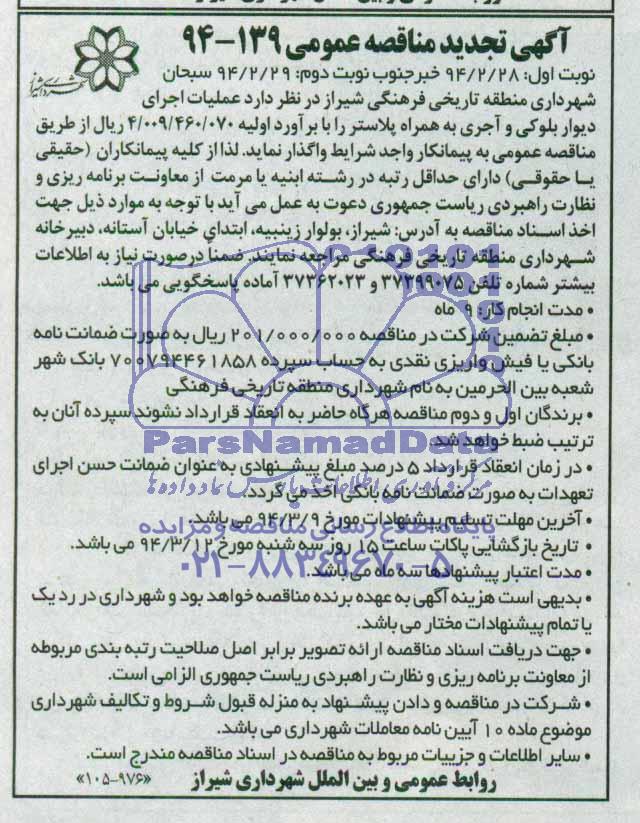 آگهی تجدید مناقصه عمومی ۱۳۹-۹۴
شهرداری شیراز
نوبت اول: ۹۴/۲/۲۸ خبرجنوب نوبت دوم: ۹۴/۲/۲۹ سبحان
شهرداری منطقه تاریخی فرهنگی شیراز در نظر دارد عملیات اجرای
دیوار بلوکی و آجری به همراه پلاستر را با برآورد اولیه ۴/۰۰۹/۴۶۰/۰۷۰ ریال از طریق
مناقصه عمومی به پیمانکار واجد شرایط واگذار نماید. لذا از کلیه پیمانکاران (حقیقی
یا حقوقی) دارای حداقل رتبه در رشته ابنیه یا مرمت از معاونت برنامه ریزی و
نظارت راهبردی ریاست جمهوری دعوت به عمل می آید با توجه به موارد ذیل جهت
اخذ اسناد مناقصه به آدرس: شیراز، بولوار زینبیه، ابتدای خیابان آستانه، دبیرخانه
شهرداری منطقه تاریخی فرهنگی مراجعه نمایند. ضمناً درصورت نیاز به اطلاعات
بیشتر شماره تلفن ۳۷۳۹۹۰۷۵ و ۳۷۳۶۲۰۲۳ آماده پاسخگویی می باشد.
• مدت انجام کار: ۹ ماه
• مبلغ تضمین شرکت در مناقصه ۲۰۱/۰۰۰/۰۰۰ ریال به صورت ضمانت نامه
بانکی یا فیش واریزی نقدی به حساب سپرده ۷۰۰۷۹۴۴۶۱۸۵۸ بانک شهر
شعبه بین الحرمین به نام شهرداری منطقه تاریخی فرهنگی
• برندگان اول و دوم مناقصه هرگاه حاضر به انعقاد قرارداد نشوند سپرده آنان به
ترتیب ضبط خواهد شد.
ParsNamadData
• در زمان انعقاد قرارداد ۵ درصد مبلغ پیشنهادی به عنوان ضمانت حسن اجرای
مرکز فناوری اطلاعات پارس نماد داده ها
تعهدات به صورت ضمانت نامه بانکی اخذ می گردد.
• آخرین مهلت تسلیم پیشنهادات مورخ ۹۴/۳/۹ می باشد.
پایگاه اطلاع رسانی مناقصه و مزایده
• تاریخ بازگشایی پاکات ساعت ۱۵ روز سه شنبه مورخ ۹۴/۳/۱۲ می باشد.
۰۲۱-۸۸۳۴۹۶۷۰-۵
• مدت اعتبار پیشنهادها سه ماه می باشد.
• بدیهی است هزینه آگهی به عهده برنده مناقصه خواهد بود و شهرداری در رد یک
یا تمام پیشنهادات مختار می باشد.
• جهت دریافت اسناد مناقصه ارائه تصویر برابر اصل صلاحیت رتبه بندی مربوطه
از معاونت برنامه ریزی و نظارت راهبردی ریاست جمهوری الزامی است.
• شرکت در مناقصه و دادن پیشنهاد به منزله قبول شروط و تکالیف شهرداری
موضوع ماده ۱۰ آیین نامه معاملات شهرداری می باشد.
• سایر اطلاعات و جزییات مربوط به مناقصه در اسناد مناقصه مندرج است.
روابط عمومی و بین الملل شهرداری شیراز «۱۰۵-۹۷۶»